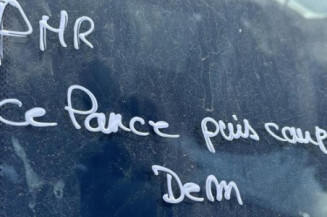 PMR
Ce lance puis coupe
Dem